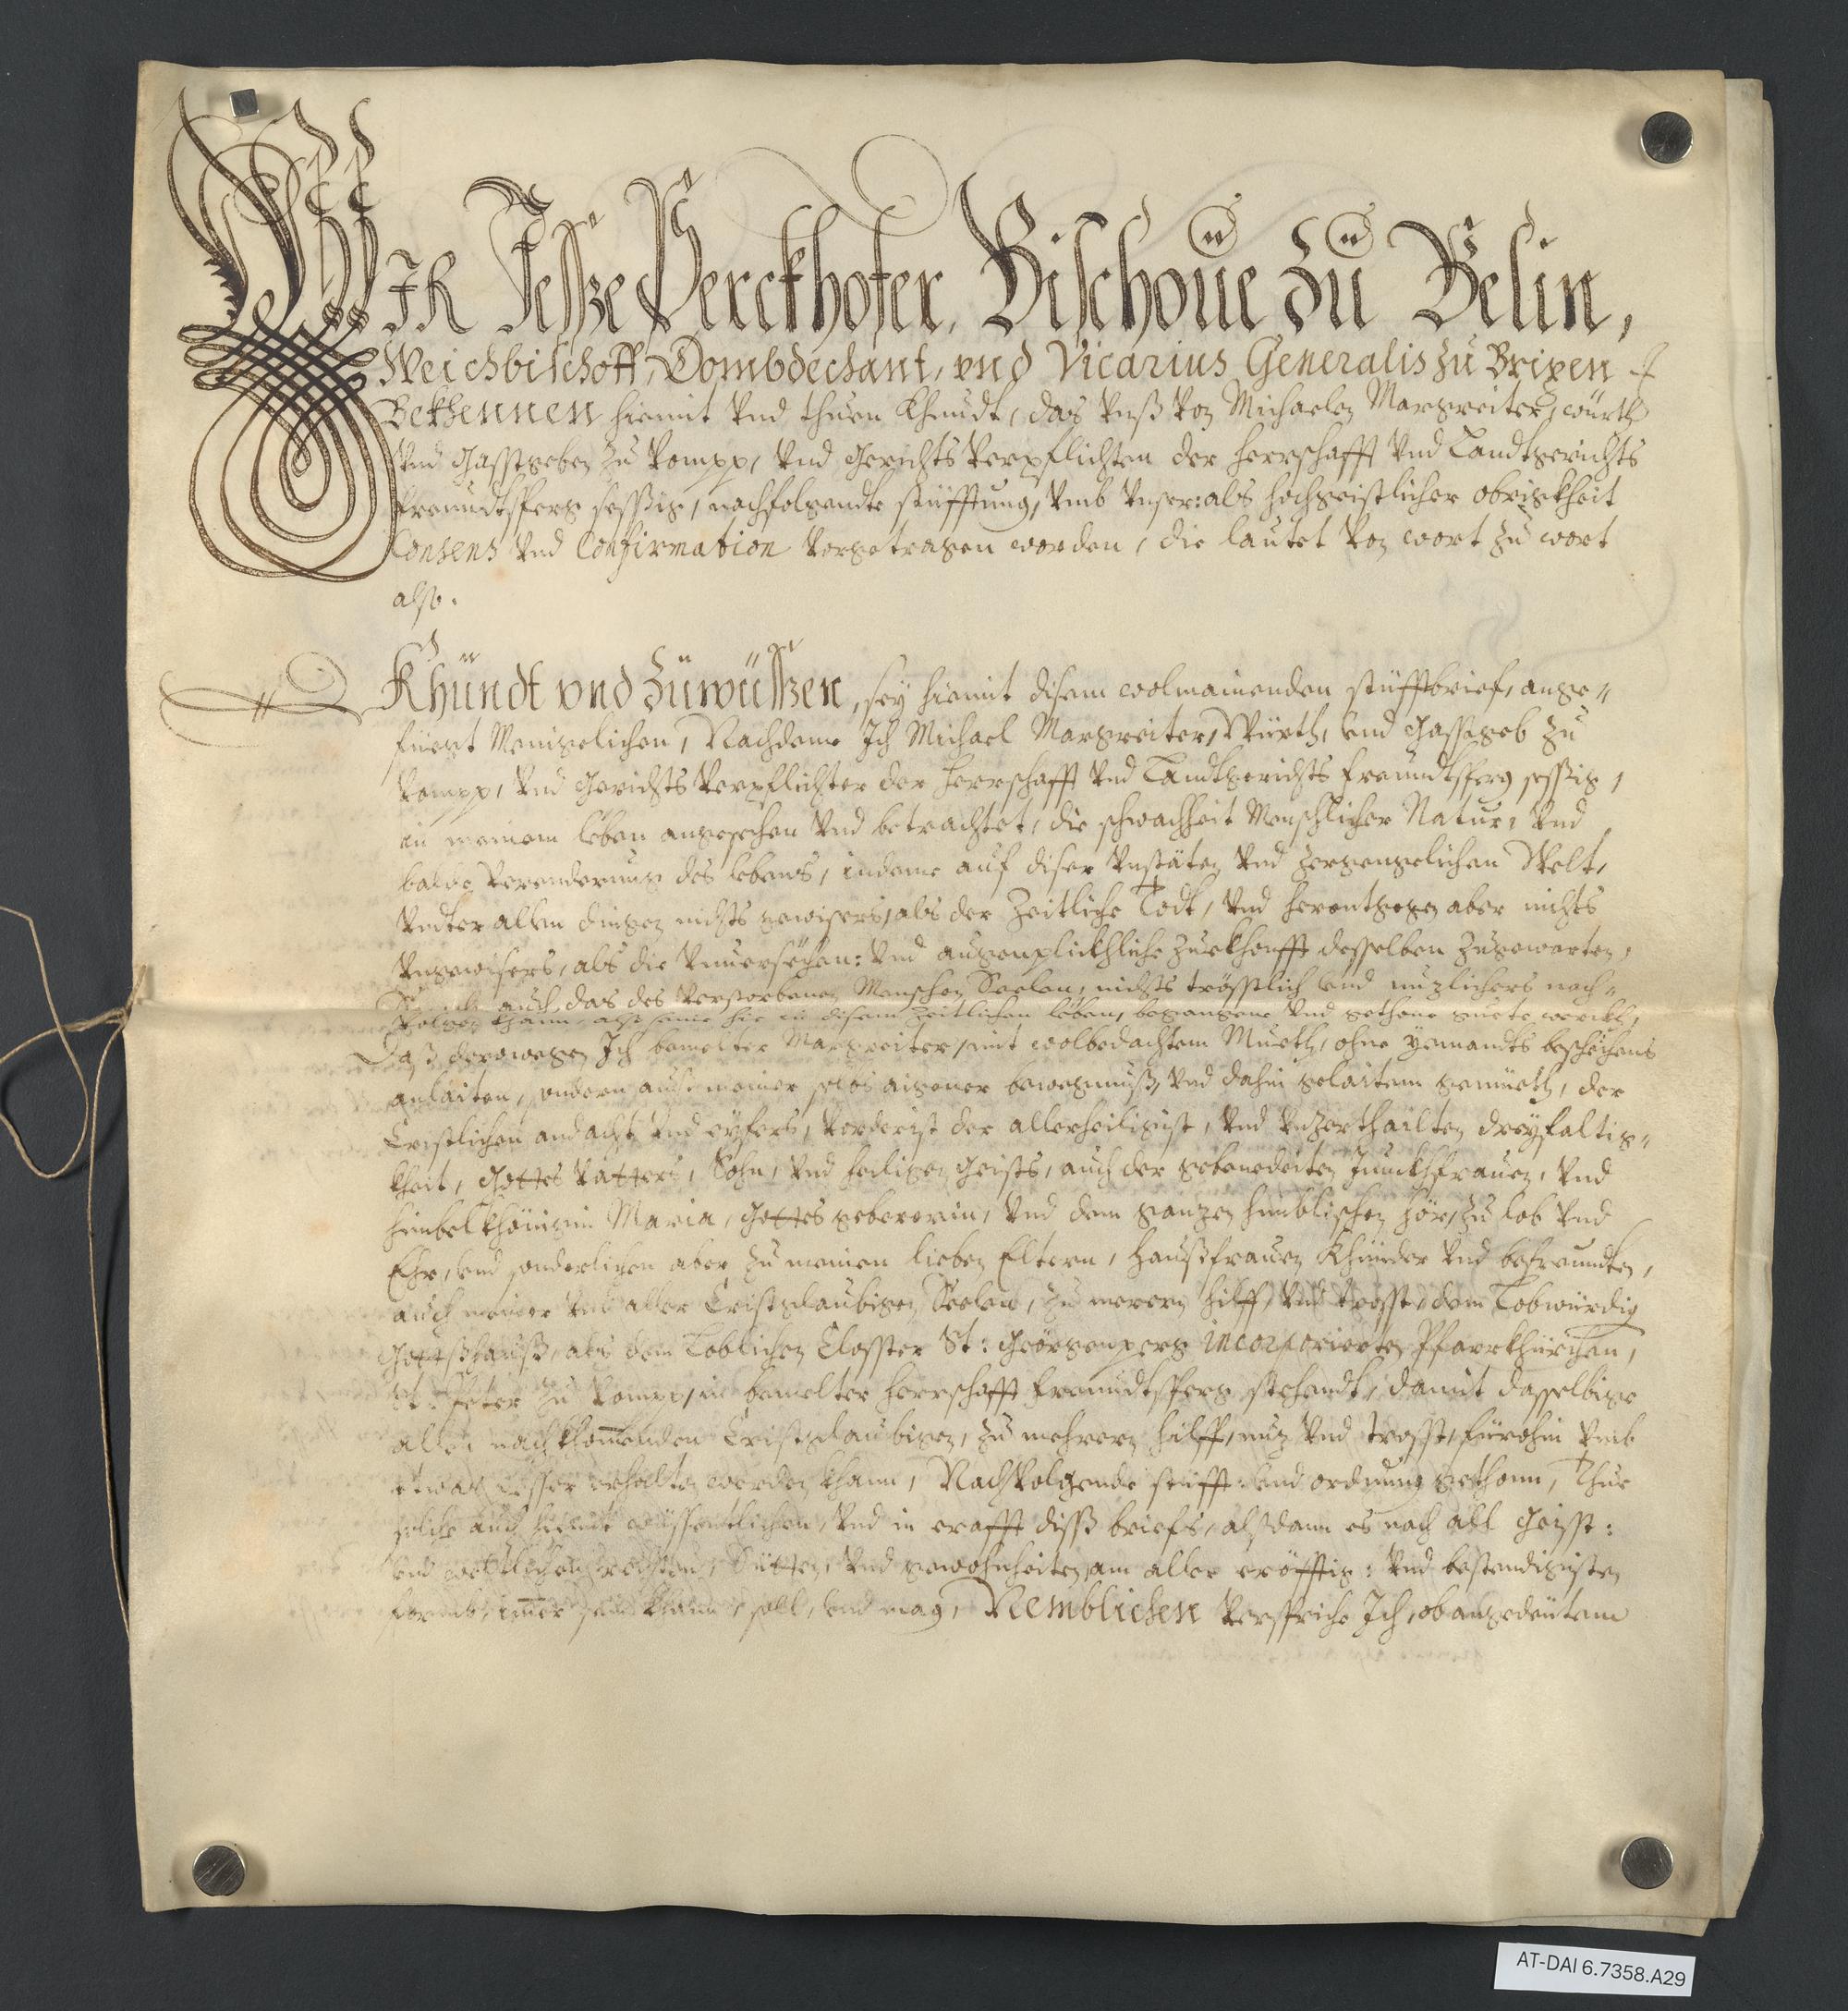 WIR Jesse Perckhofer, Bischoue zu Belin,
Weichbischoff, Dombdechant, vnd Vicarius Generalis zu Brixen
Bekhennen hiemit vnd thuen khundt, das vnß von Michaelen Margreiter, würth
vnd Gasstgeben zu Vompp, vnd Gerichts verpflichten der Herrschafft vnd Landtgerichts
Freundtsperg sesßig, nachfolgendte stüfftung, vmb vnser: als hochgeistlicher obrigkheit
Consens vnd Confirmation vorgetragen worden, die lautet von wort zu wort
also.
Khundt vnd zuwüssen, sey hiemit disem wolmainenden stüfftbrief, ange-
füegt Menigelichen, Nachdeme Ich Michael Margreiter, Würth, vnd Gasstgeb zu
Vompp, vnd Gerichts verpflichter der Herrschafft vnd Landtgerichts Freundtsperg sesßig,
in meinem leben angesechen vnd betrachtet, die schwachheit Menschlicher Natur, vnd
balde verenderung des lebens, indeme auf diser vnstäten vnd zergengelichen Welt,
vndter allen dingen nichts gewisers, als der Zeitliche Todt, vnd herentgegen aber nichts
vngewisers, als die vnuersechen: vnd augenplickhliche zuekhonfft desselben zugewarten,
auch das des verstorbenen Menschen Seelen, nichts trösstlich vnd nuzlichers nach-
uolgen khann, als seine hie in disem zeitlichen leben, begangene vnd gethone guete werckh,
Daß derowegen Ich bemelter Margreiter, mit wolbedachtem Mueth, ohne yemandts beschechens
anlaiten, sondern auß meiner selbs aigener bewegnuß, vnd dahin gelaitem gemüeth, der
Cristlichen andacht vnd eyfers, vorderist der allerheiligist, vnd vnzerthailten dreyfaltig-
kheit, Gottes Vatters, Sohn, vnd heiligen Geists, auch der gebenedeiten Junckhfrauen, vnd
himbelkhönigin Maria, Gottes gebererin, vnd dem ganzen himblischen hör, zu lob vnd
Ehr, vnd sonderlichen aber zu meinen lieben Eltern, Haußfrauen Khinder vnd befreundten,
auch meiner vnd aller Cristglaubigen Seelen, zu merern hilff, vnd trosst, dem Lobwürdig
Gottßhauß, als dem Loblichen Closster St: Geörgenperg incorporierten Pfarrkhürchen,
St: Peter zu Vompp, in bemelter Herrschafft Freundtsperg stehendt, damit dasselbige
allen nachkhomenden Cristglaubigen, zu mehrern hilff, nuz vnd trosst, fürohin vmb
etwas besser erhalten werden khann, Nachuolgende stüfft: vnd ordnung gethonn, Thue
solche auch hiemit wüssentlichen, vnd in crafft diß briefs, alßdann es nach all Geisst:
vnd weltlichen rechten, Sitten, vnd gewohnheiten, am aller cröfftig: vnd bestendigisten
formb, imer sein khann, soll, vnd mag, Nemblichen verspriche Ich, obangedeütem
AT-DAI 6.7358.A29